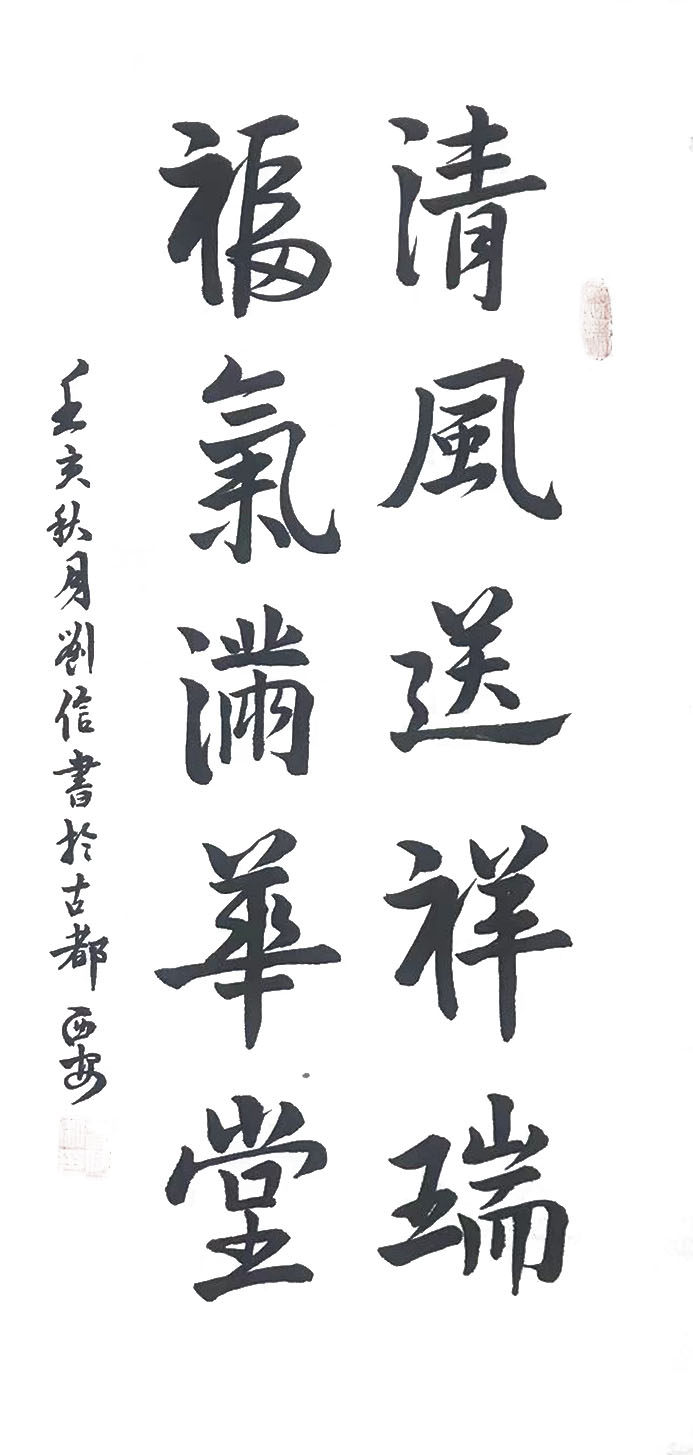 清風送祥瑞
福氣滿華堂
壬亥秋月劉信書於古都西安